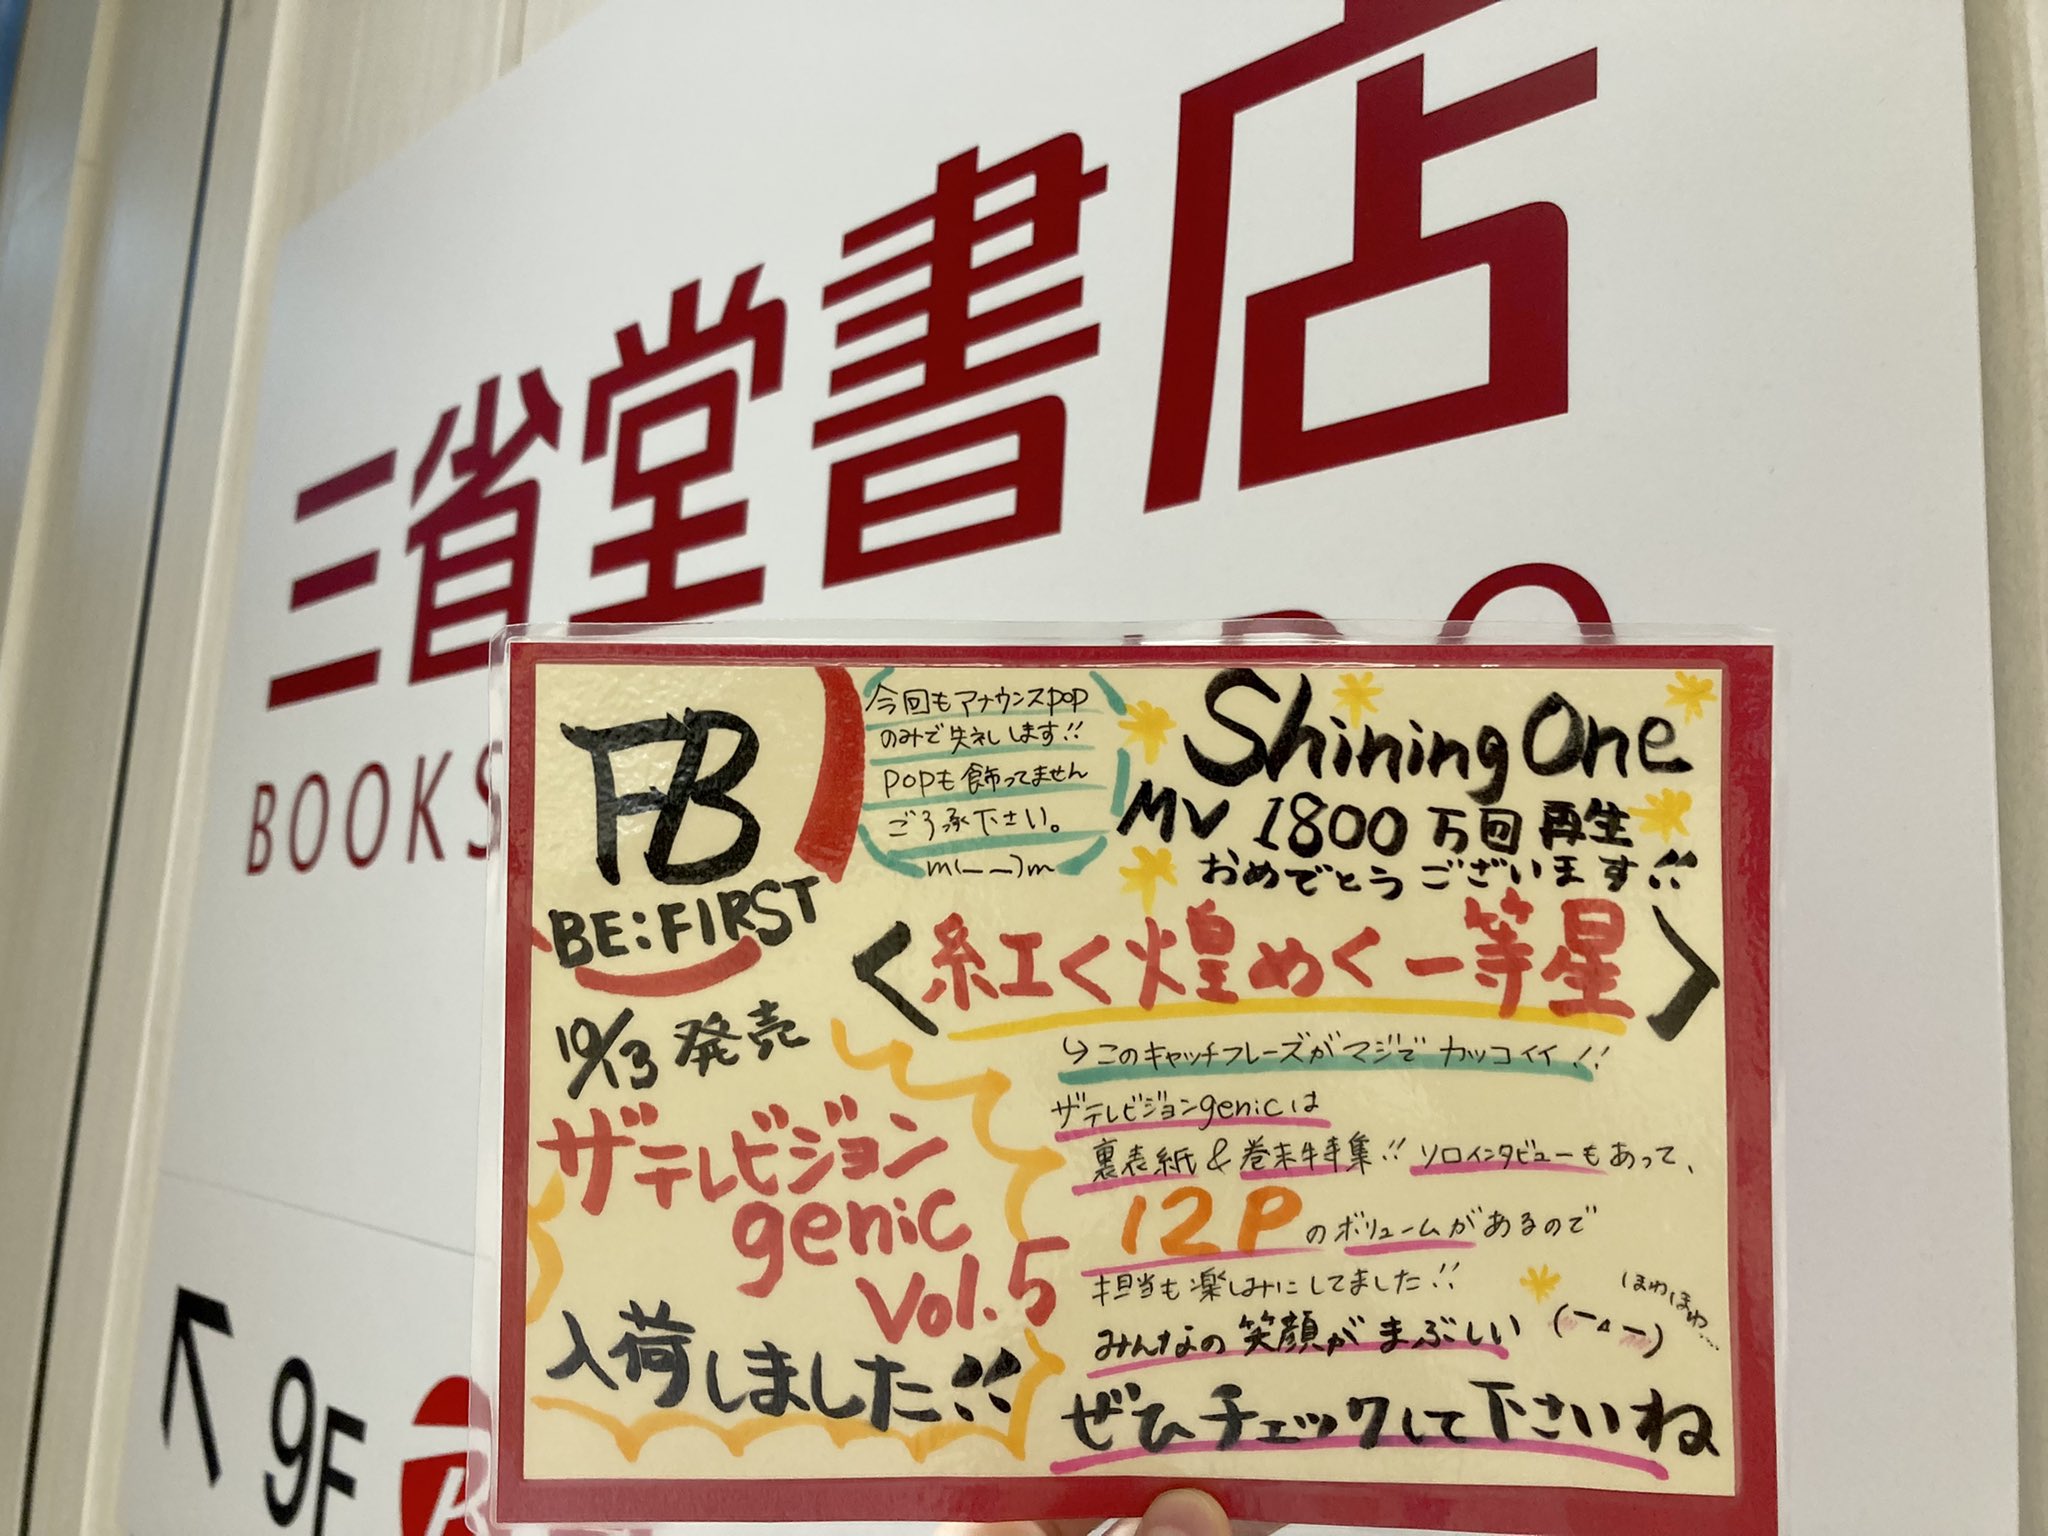 三省堂書店
BOOKS
9F
FB
BE:FIRST
10/13 発売
ザテレビジョン
genic
Vol.5
入荷しました!!
今回もアナウンスpop
のみで失礼します!!
popも飾ってません
ご了承下さい。
m(_ _)m
Shining One
MV 1800万回再生
おめでとうございます!!
<紅く煌めく一等星>
↪このキャッチフレーズがマジでカッコイイ!!
ザテレビジョンgenicは
裏表紙&巻末特集!!ソロインタビューもあって、
12Pのボリュームがあるので
担当も楽しみにしてました!!
みんなの笑顔がまぶしい
ほわほわ…
ぜひチェックして下さいね